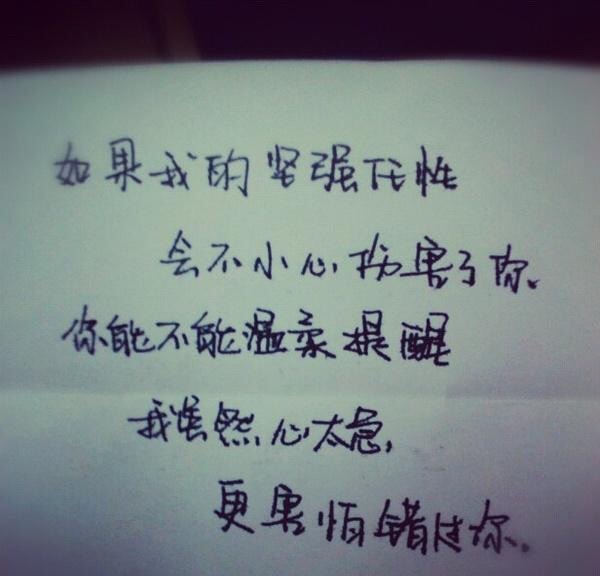 如果我的坚强任性
会不小心伤害了你、
你能不能温柔提醒
我虽然心太急,
更害怕错过你。